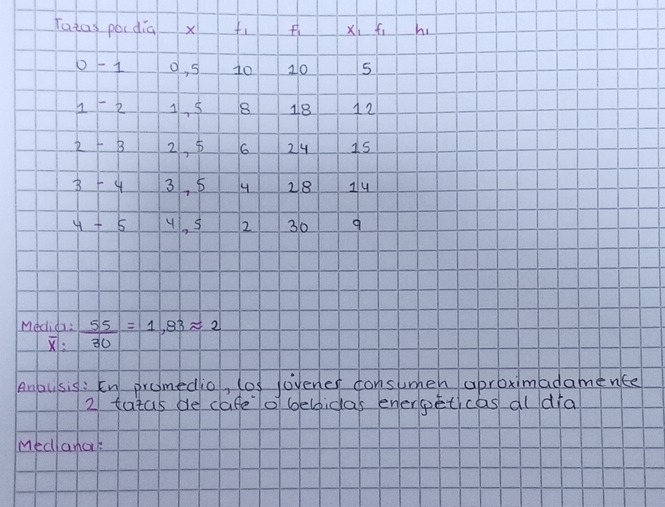 Tazas por día x fi Fi xi fi hi
0 - 1 0,5 10 10 5
1 - 2 1,5 8 18 12
2 - 3 2,5 6 24 15
3 - 4 3,5 4 28 14
4 - 5 4,5 2 30 9
Media: 55/30 = 1,83 ≈ 2
x̄:
Análisis: En promedio, los jóvenes consumen aproximadamente
2 tazas de café o bebidas energéticas al día
Mediana: